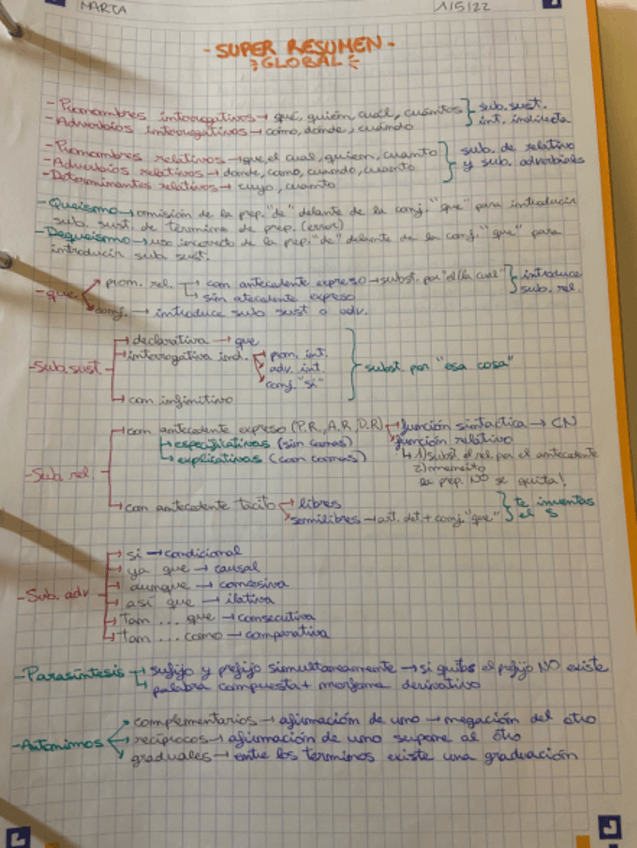 MARTA 1/5/22
- SUPER RESUMEN -
GLOBAL
- Pronombres interrogativos → qué, quién, cuál, cuántos } sub. sust.
- Adverbios interrogativos → cómo, dónde, cuándo int. indirecta
- Pronombres relativos → que, el cual, quien, cuanto } sub. de relativo
- Adverbios relativos → donde, como, cuando, cuanto y sub. adverbiales
- Determinantes relativos → cuyo, cuanto
- Queísmo → omisión de la prep. "de" delante de la conj. "que" para introducir
sub. sust. de término de prep. (error)
- Dequeísmo → uso incorrecto de la prep. "de" delante de la conj. "que" para
introducir sub sust.
- que pron. rel. → con antecedente expreso → subst. por "el/la cual" } introduce
sin atecedente expreso sub. rel.
conj. → introduce sub sust o adv.
→ declarativa → que
- Sub. sust → interrogativa ind. → pron. int. } subst por "esa cosa"
adv. int.
conj. "si"
→ con infinitivo
→ con antecedente expreso (P.R., A.R, D.R) → función sintáctica → CN
→ especificativas (sin comas) función relativo
→ explicativas (con comas) 1) subst el rel. por el antecedente
- Sub rel. 2)
la prep. NO se quita!
→ con antecedente tácito → libres } te inventas
semilibres → art. det + conj. "que" el S
→ si → condicional
→ ya que → causal
→ aunque → concesiva
- Sub. adv → así que → ilativa
→ Tan ... que → consecutiva
→ tan ... como → comparativa
- Parasíntesis → sufijo y prefijo simultaneamente → si quitas el prefijo NO existe
→ palabra compuesta + morfema derivativo
→ complementarios → afirmación de uno → negación del otro
- Antónimos → recíprocos → afirmación de uno supone al otro
→ graduales → entre los terminos existe una graduación